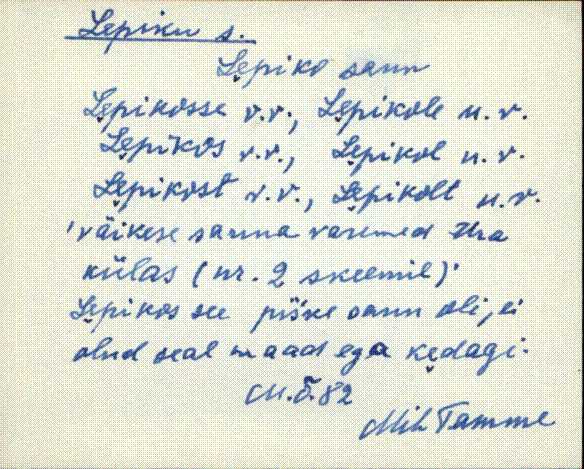 Lepiku s.
Lẹpiko saun
Lẹpikosse v.v., Lẹpikole u.v.
Lẹpikos v.v., Lẹpikol u.v.
Lẹpikost v.v., Lẹpikolt u.v.
'väikese sauna varemed Ura
külas (nr. 2 skeemil)'
Lẹpikos see piske saun oli, ei
olnd seal maad ega kẹdagi.
Mih Tamme